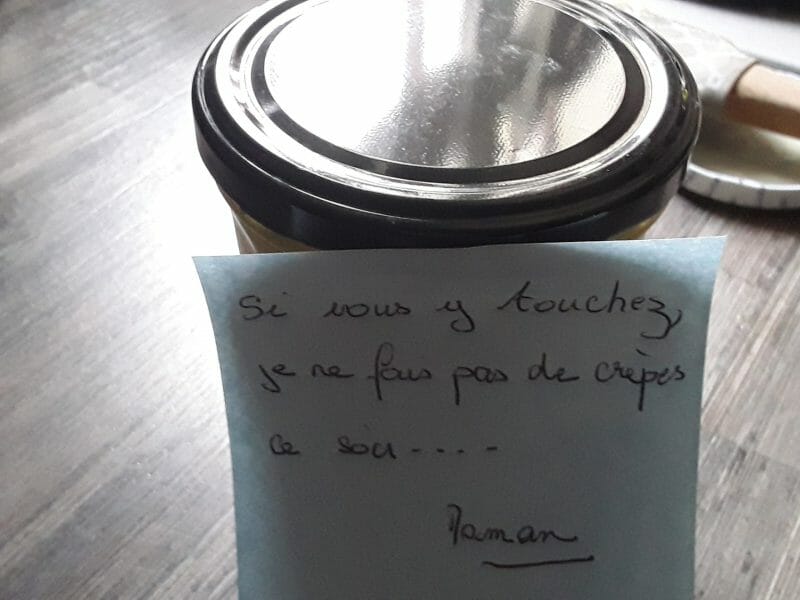 Si vous y touchez,
je ne fais pas de crèpes
ce soir....
Maman